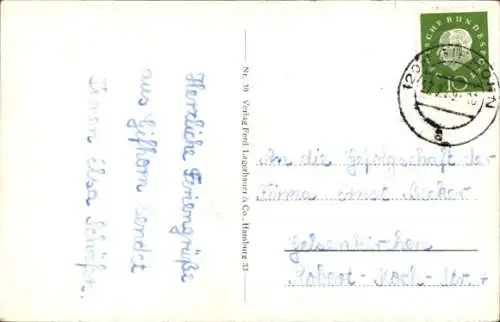 Herzliche Feriengrüße
aus Gifhorn sendet
Ihnen Elsa
Nr. 39 Verlag Ferd. Lagerbauer & Co., Hamburg 33
DEUTSCHE BUNDESPOST
10
An die Gefolgschaft der
Firma Ernst Becker
Gelsenkirchen
Robert-Koch-Str.